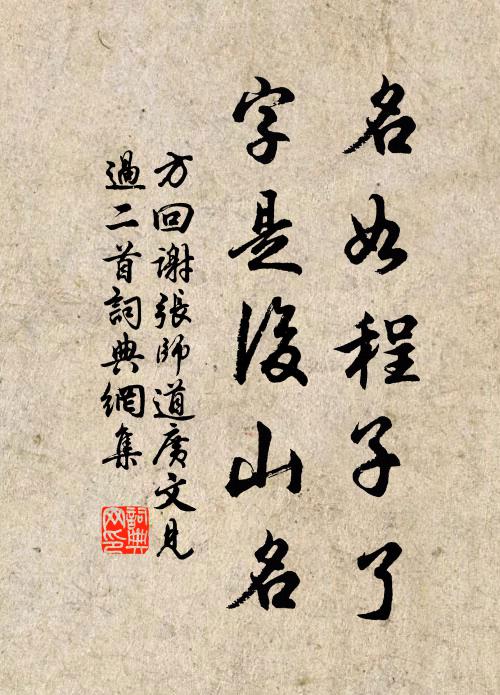 名如程子了
字是後山名
方回謝張師道廣文見
過二首詞典網集
詞典
网印